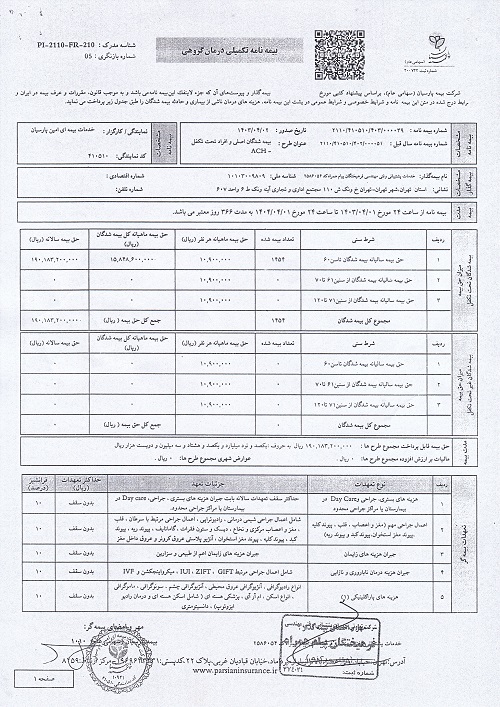 شناسه مدرک : PI-2110-FR-210
شماره بازنگری : 05
بیمه نامه تکمیلی درمان گروهی
شرکت بیمه پارسیان (سهامی عام)، براساس پیشنهاد کتبی مورخ بیمه گذار و پیوست‌های آن که جزء لاینفک این بیمه نامه می‌باشد و به موجب قانون، مقررات و عرف بیمه در ایران و
شرایط درج شده در متن این بیمه نامه و شرایط خصوصی و شرایط عمومی در پشت این بیمه نامه، هزینه های درمان ناشی از بیماری و حادثه بیمه شدگان را طبق جدول زیر پرداخت می نماید.
شماره بیمه نامه : ۲۱۱۰/۴۱۰۵۱۰/۴۰۳/۰۰۰۰۲۹
تاریخ صدور : ۱۴۰۳/۰۴/۰۲
نمایندگی / کارگزار : خدمات بیمه ای امین پارسیان
شماره بیمه نامه سال قبل : ۲۱۱۰/۴۱۰۵۱۰/۴۰۲/۰۰۰۰۵۱
عنوان طرح : بیمه شدگان اصلی و افراد تحت تکفل
ACH -
کد نمایندگی : ۴۱۰۵۱۰
نام بیمه‌گذار: خدمات پشتیبانی وفنی مهندسی فرهیختگان پیام همراه کد ۲۵۸۶۰۵۴
شناسه ملی: ۱۰۱۰۳۰۰۹۸۰۹
شماره اقتصادی :
نشانی: استان تهران،شهر تهران،تهران خ ونک ش ۱۱۰ مجتمع اداری و تجاری آینه ونک ط ۶ واحد ۶۰۷
شماره تلفن:
مدت بیمه
بیمه نامه از ساعت ۲۴ مورخ ۱۴۰۳/۰۴/۰۱ تا ساعت ۲۴ مورخ ۱۴۰۴/۰۴/۰۱ به مدت ۳۶۶ روز معتبر می باشد.
ردیف شرط سنی تعداد بیمه شده حق بیمه ماهیانه هر نفر (ریال) حق بیمه ماهیانه کل بیمه شدگان (ریال) حق بیمه سالانه (ریال)
۱ حق بیمه سالیانه بیمه شدگان تاسن۶۰ ۱۴۵۴ ۱۰,۹۰۰,۰۰۰ ۱۵,۸۴۸,۶۰۰,۰۰۰ ۱۹۰,۱۸۳,۲۰۰,۰۰۰
۲ حق بیمه سالیانه بیمه شدگان از سنین۶۱ تا۷۰ ۰ ۱۰,۹۰۰,۰۰۰ ۰ ۰
۳ حق بیمه سالیانه بیمه شدگان از سنین۷۱ تا۱۲۰ ۰ ۱۰,۹۰۰,۰۰۰ ۰ ۰
مجموع کل بیمه شدگان ۱۴۵۴ جمع کل حق بیمه ( ریال) ۱۹۰,۱۸۳,۲۰۰,۰۰۰
ردیف شرط سنی تعداد بیمه شده حق بیمه ماهیانه هر نفر (ریال) حق بیمه ماهیانه کل بیمه شدگان (ریال) حق بیمه سالانه (ریال)
۱ حق بیمه سالیانه بیمه شدگان تاسن۶۰ ۰ ۱۰,۹۰۰,۰۰۰ ۰ ۰
۲ حق بیمه سالیانه بیمه شدگان از سنین۶۱ تا۷۰ ۰ ۱۰,۹۰۰,۰۰۰ ۰ ۰
۳ حق بیمه سالیانه بیمه شدگان از سنین۷۱ تا۱۲۰ ۰ ۱۰,۹۰۰,۰۰۰ ۰ ۰
مجموع کل بیمه شدگان ۰ جمع کل حق بیمه ( ریال) ۰
حق بیمه قابل پرداخت مجموع طرح ها : ۱۹۰,۱۸۳,۲۰۰,۰۰۰ ریال به حروف یکصد و نود میلیارد و یکصد و هشتاد و سه میلیون و دویست هزار ریال
مالیات بر ارزش افزوده مجموع طرح ها : ۰ ریال. عوارض شهری مجموع طرح ها: ۰ ریال.
ردیف نوع تعهدات جزئیات تعهد حداکثر تعهدات (ریال) فرانشیز (درصد)
۱ هزینه های بستری، جراحی و Day Care در بیمارستان یا مراکز جراحی محدود حداکثر سقف تعهدات سالانه بابت جبران هزینه های بستری ، جراحی، Day Care در بیمارستان یا مراکز جراحی محدود. بدون سقف ۱۰
۲ اعمال جراحی مهم (مغز و اعصاب , قلب , پیوند کلیه ,پیوند مغز استخوان,پیوند کبد و پیوند ریه) شامل اعمال جراحی شیمی درمانی ، رادیوتراپی ، اعمال جراحی مرتبط با سرطان ، قلب ، مغز و اعصاب مرکزی و نخاع ، دیسک و ستون فقرات ، گامانایف ، پیوند ریه ، پیوند کبد ، پیوند کلیه ، پیوند مغز استخوان ، آنژیو پلاستی عروق کرونر و عروق داخل مغز بدون سقف ۱۰
۳ جبران هزینه های زایمان جبران هزینه های زایمان اعم از طبیعی و سزارین بدون سقف ۱۰
۴ جبران هزینه درمان ناباروری و نازایی شامل اعمال جراحی مرتبط IUI ، ZIFT ، GIFT ، میکرواینجکشن و IVF بدون سقف ۱۰
۵ هزینه های پاراکلینیکی (۱) انواع رادیوگرافی ، آنژیوگرافی عروق محیطی ، آنژیوگرافی چشم ، سونوگرافی ، ماموگرافی ، انواع اسکن ، ام آر آی ، پزشکی هسته ای ( شامل اسکن هسته ای و درمان رادیو ایزوتوپ) ، دانسیتومتری بدون سقف ۱۰
مهر و امضای بیمه گر:
فرهیختگان پیام همراه
۲۵۸۶۰۵۴
شماره ثبت:
www.parsianinsurance.ir
صفحه ۱